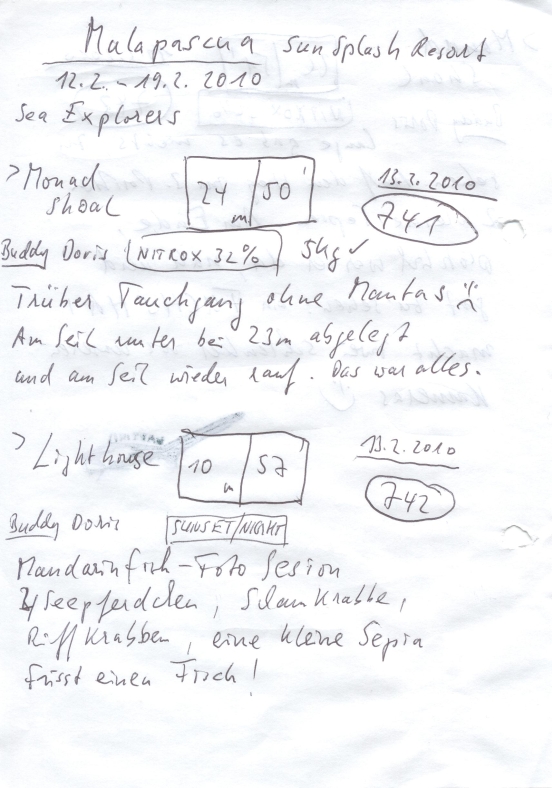 Malapascua Sun Splash Resort
12.2. - 19.2. 2010
Sea Explorers
> Monad Shoal 24 m 50' 13.2. 2010 741
Buddy Doris NITROX 32% 5kg ✓
Trüber Tauchgang ohne Mantas ☹
Am Seil runter bei 23m abgelegt
und am Seil wieder rauf. Das war alles.
> Lighthouse 10 m 57' 13.2. 2010 742
Buddy Doris SUNSET/NIGHT
Mandarinfisch-Foto Sesion
Seepferdchen, Krabbe,
Riff Krabben, eine kleine Sepia
frisst einen Fisch!